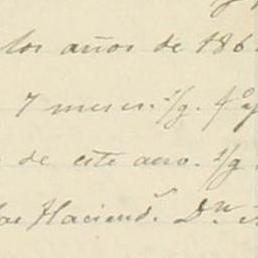 los años de 186
7 meses. 1/g. fº
de este ano. 1/g.
las Haciend.ˢ Dⁿ